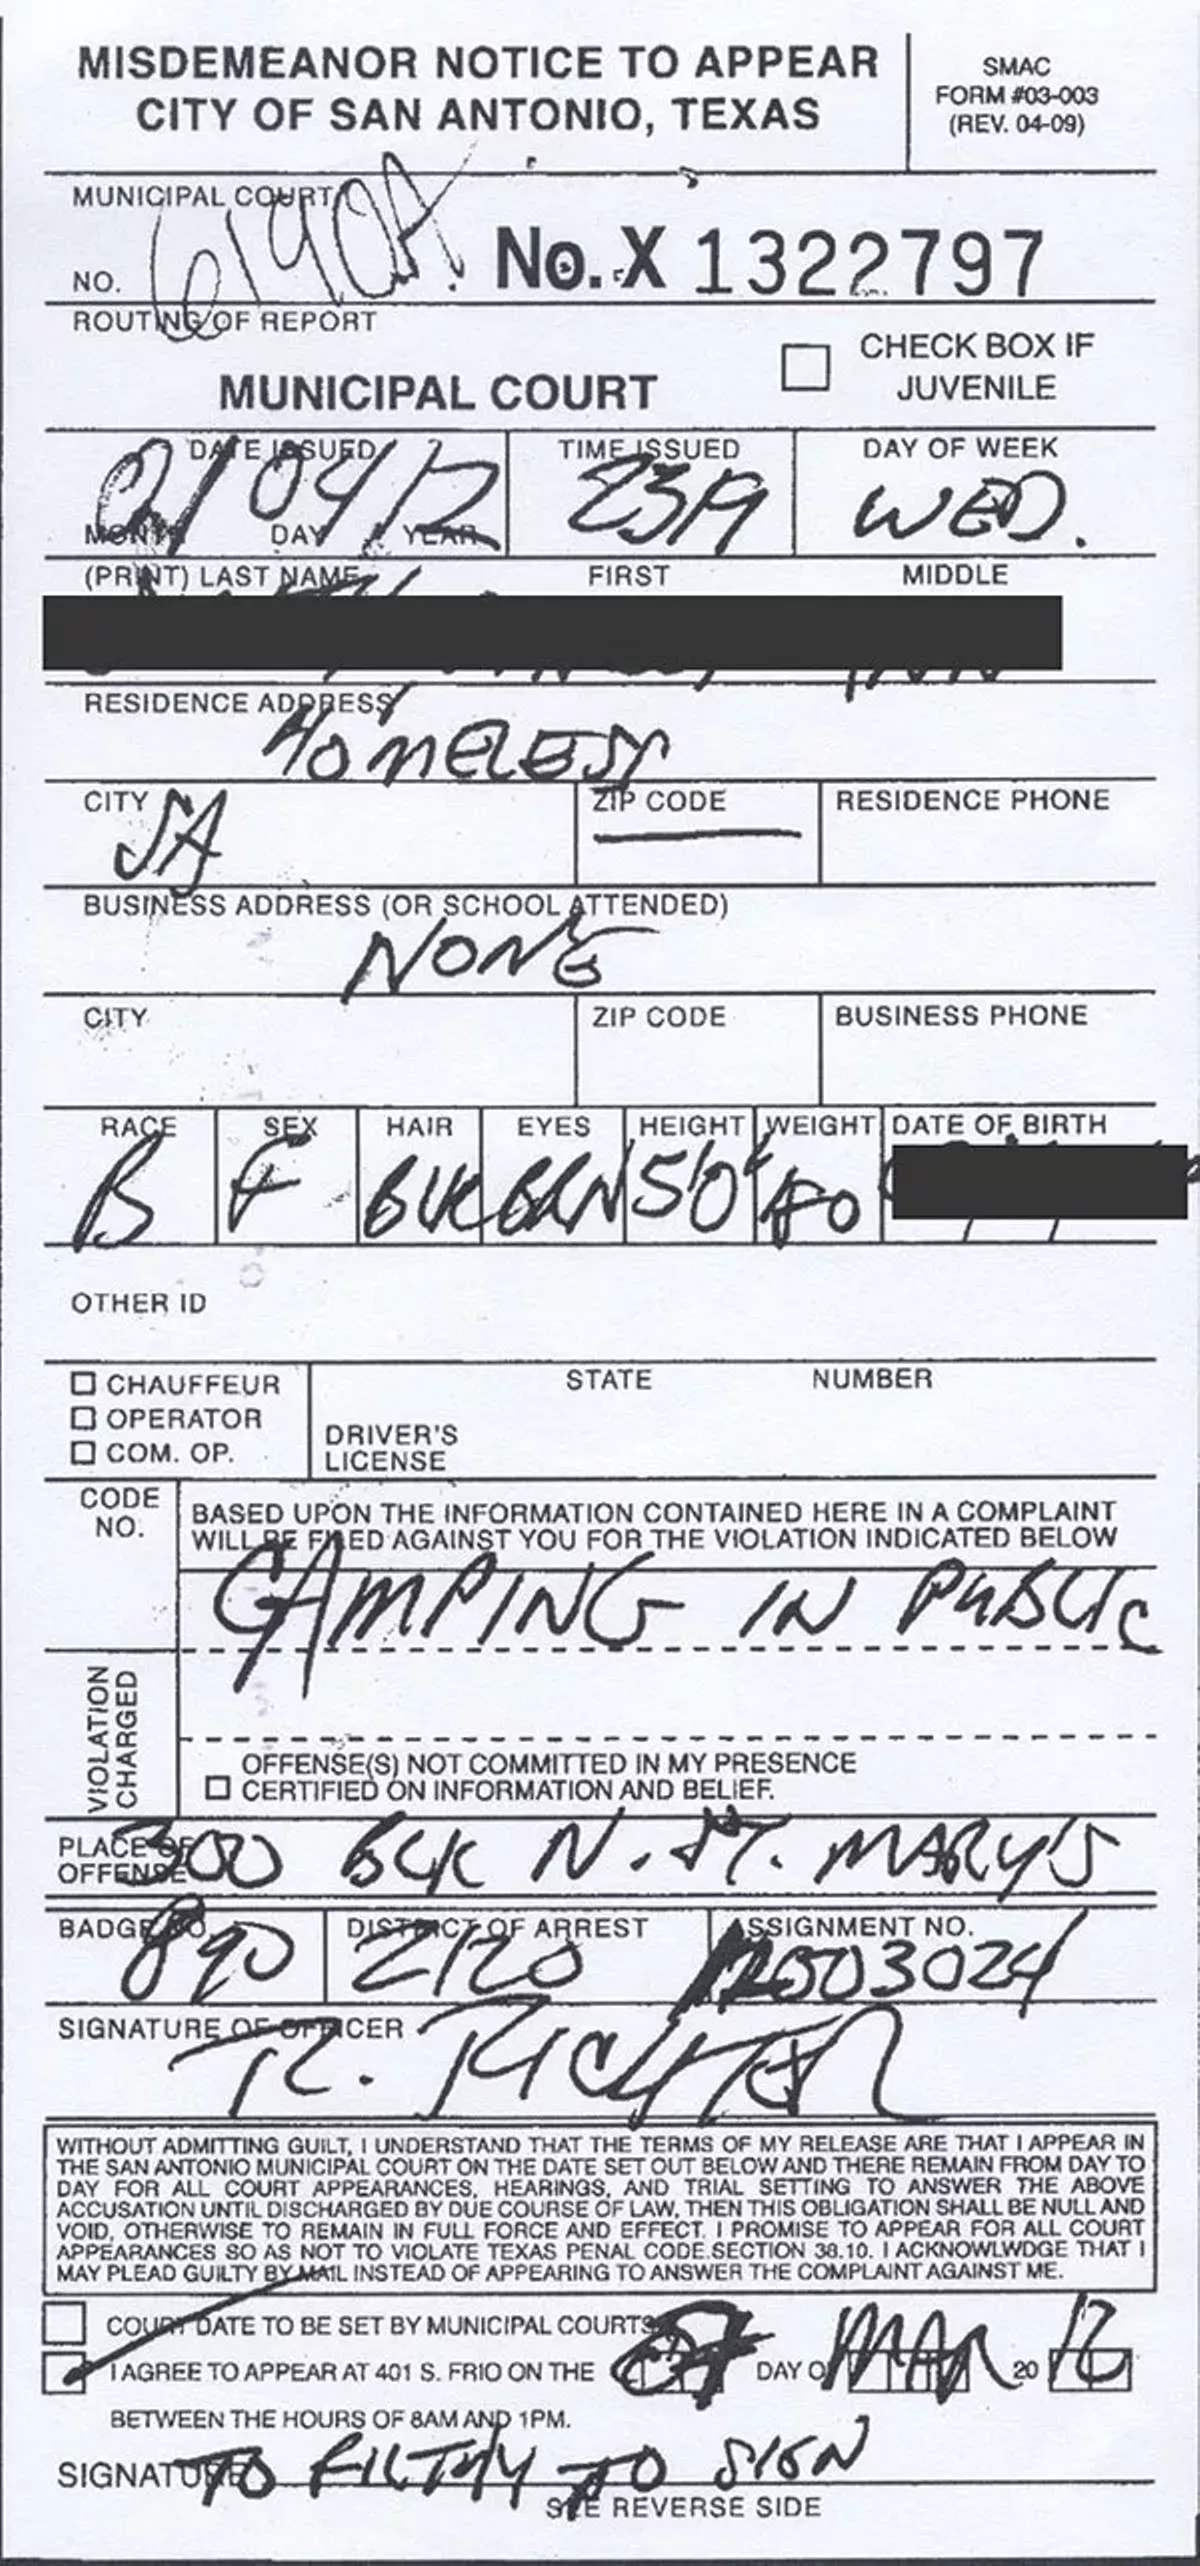 MISDEMEANOR NOTICE TO APPEAR
CITY OF SAN ANTONIO, TEXAS
SMAC
FORM #03-003
(REV. 04-09)
MUNICIPAL COURT
NO. 6190A No. X 1322797
ROUTING OF REPORT
MUNICIPAL COURT
CHECK BOX IF
JUVENILE
DATE ISSUED TIME ISSUED DAY OF WEEK
2319 WED.
MONTH DAY YEAR
(PRINT) LAST NAME FIRST MIDDLE
RESIDENCE ADDRESS
HOMELESS
CITY ZIP CODE RESIDENCE PHONE
SA
BUSINESS ADDRESS (OR SCHOOL ATTENDED)
NONE
CITY ZIP CODE BUSINESS PHONE
RACE SEX HAIR EYES HEIGHT WEIGHT DATE OF BIRTH
B F BLK BRN 5'0"
OTHER ID
CHAUFFEUR
OPERATOR
COM. OP.
STATE NUMBER
DRIVER'S
LICENSE
CODE
NO.
BASED UPON THE INFORMATION CONTAINED HERE IN A COMPLAINT
WILL BE FILED AGAINST YOU FOR THE VIOLATION INDICATED BELOW
CAMPING IN PUBLIC
VIOLATION
CHARGED
OFFENSE(S) NOT COMMITTED IN MY PRESENCE
CERTIFIED ON INFORMATION AND BELIEF.
PLACE OF
OFFENSE
300 BLK N. ST. MARY'S
BADGE NO. DISTRICT OF ARREST ASSIGNMENT NO.
890 2120
SIGNATURE OF OFFICER
R. RICHTER
WITHOUT ADMITTING GUILT, I UNDERSTAND THAT THE TERMS OF MY RELEASE ARE THAT I APPEAR IN
THE SAN ANTONIO MUNICIPAL COURT ON THE DATE SET OUT BELOW AND THERE REMAIN FROM DAY TO
DAY FOR ALL COURT APPEARANCES, HEARINGS, AND TRIAL SETTING TO ANSWER THE ABOVE
ACCUSATION UNTIL DISCHARGED BY DUE COURSE OF LAW, THEN THIS OBLIGATION SHALL BE NULL AND
VOID, OTHERWISE TO REMAIN IN FULL FORCE AND EFFECT. I PROMISE TO APPEAR FOR ALL COURT
APPEARANCES SO AS NOT TO VIOLATE TEXAS PENAL CODE.SECTION 38.10. I ACKNOWLWDGE THAT I
MAY PLEAD GUILTY BY MAIL INSTEAD OF APPEARING TO ANSWER THE COMPLAINT AGAINST ME.
COURT DATE TO BE SET BY MUNICIPAL COURTS
I AGREE TO APPEAR AT 401 S. FRIO ON THE DAY OF MAR 20 12
BETWEEN THE HOURS OF 8AM AND 1PM.
SIGNATURE TO FILTHY TO SIGN
SEE REVERSE SIDE